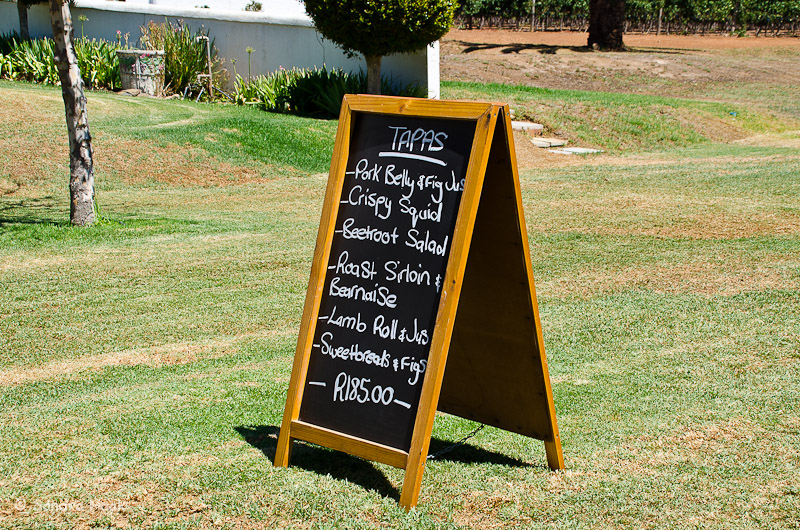 TAPAS
-Pork Belly & Fig Jus
-Crispy Squid
-Beetroot Salad
-Roast Sirloin &
Bearnaise
-Lamb Roll & Jus
-Sweetbreads & Figs
- R185.00 -